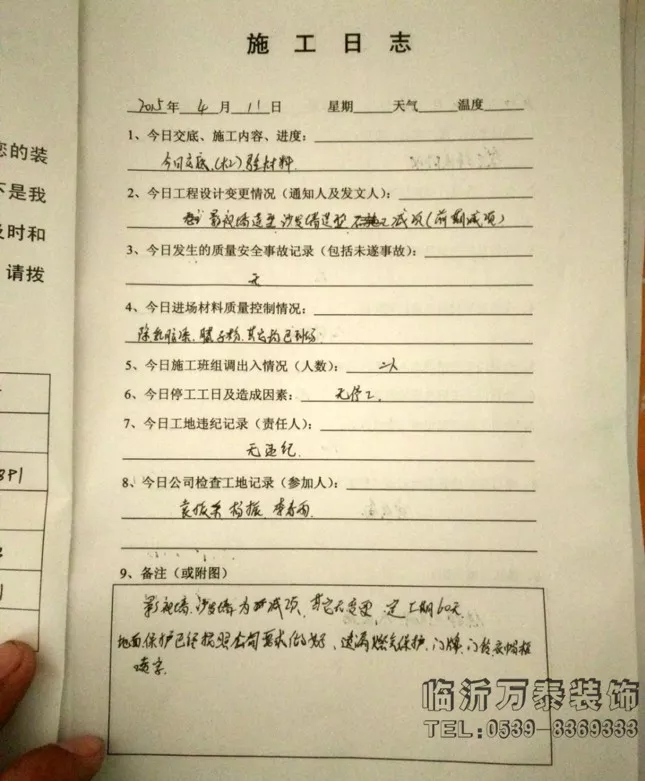 施工日志
您的装
不是我
及时和
请拨
2015年 4月 11日 星期 天气 温度
1、今日交底、施工内容、进度：
今日交底、(水工)验材料
2、今日工程设计变更情况（通知人及发文人）：
影视墙造型 沙发墙造型 减项(前期减项)
3、今日发生的质量安全事故记录（包括未遂事故）：
无
4、今日进场材料质量控制情况：
除乳胶漆、腻子粉,其它均已到场
5、今日施工班组调出入情况（人数）： 2人
6、今日停工工日及造成因素： 无停工.
7、今日工地违纪记录（责任人）：
无违纪.
8、今日公司检查工地记录（参加人）：
9、备注（或附图）
影视墙、沙发墙为减项、其它无变更、定工期60天
地面保护已经按照公司要求做好、
临沂万泰装饰
TEL:0539-8369333